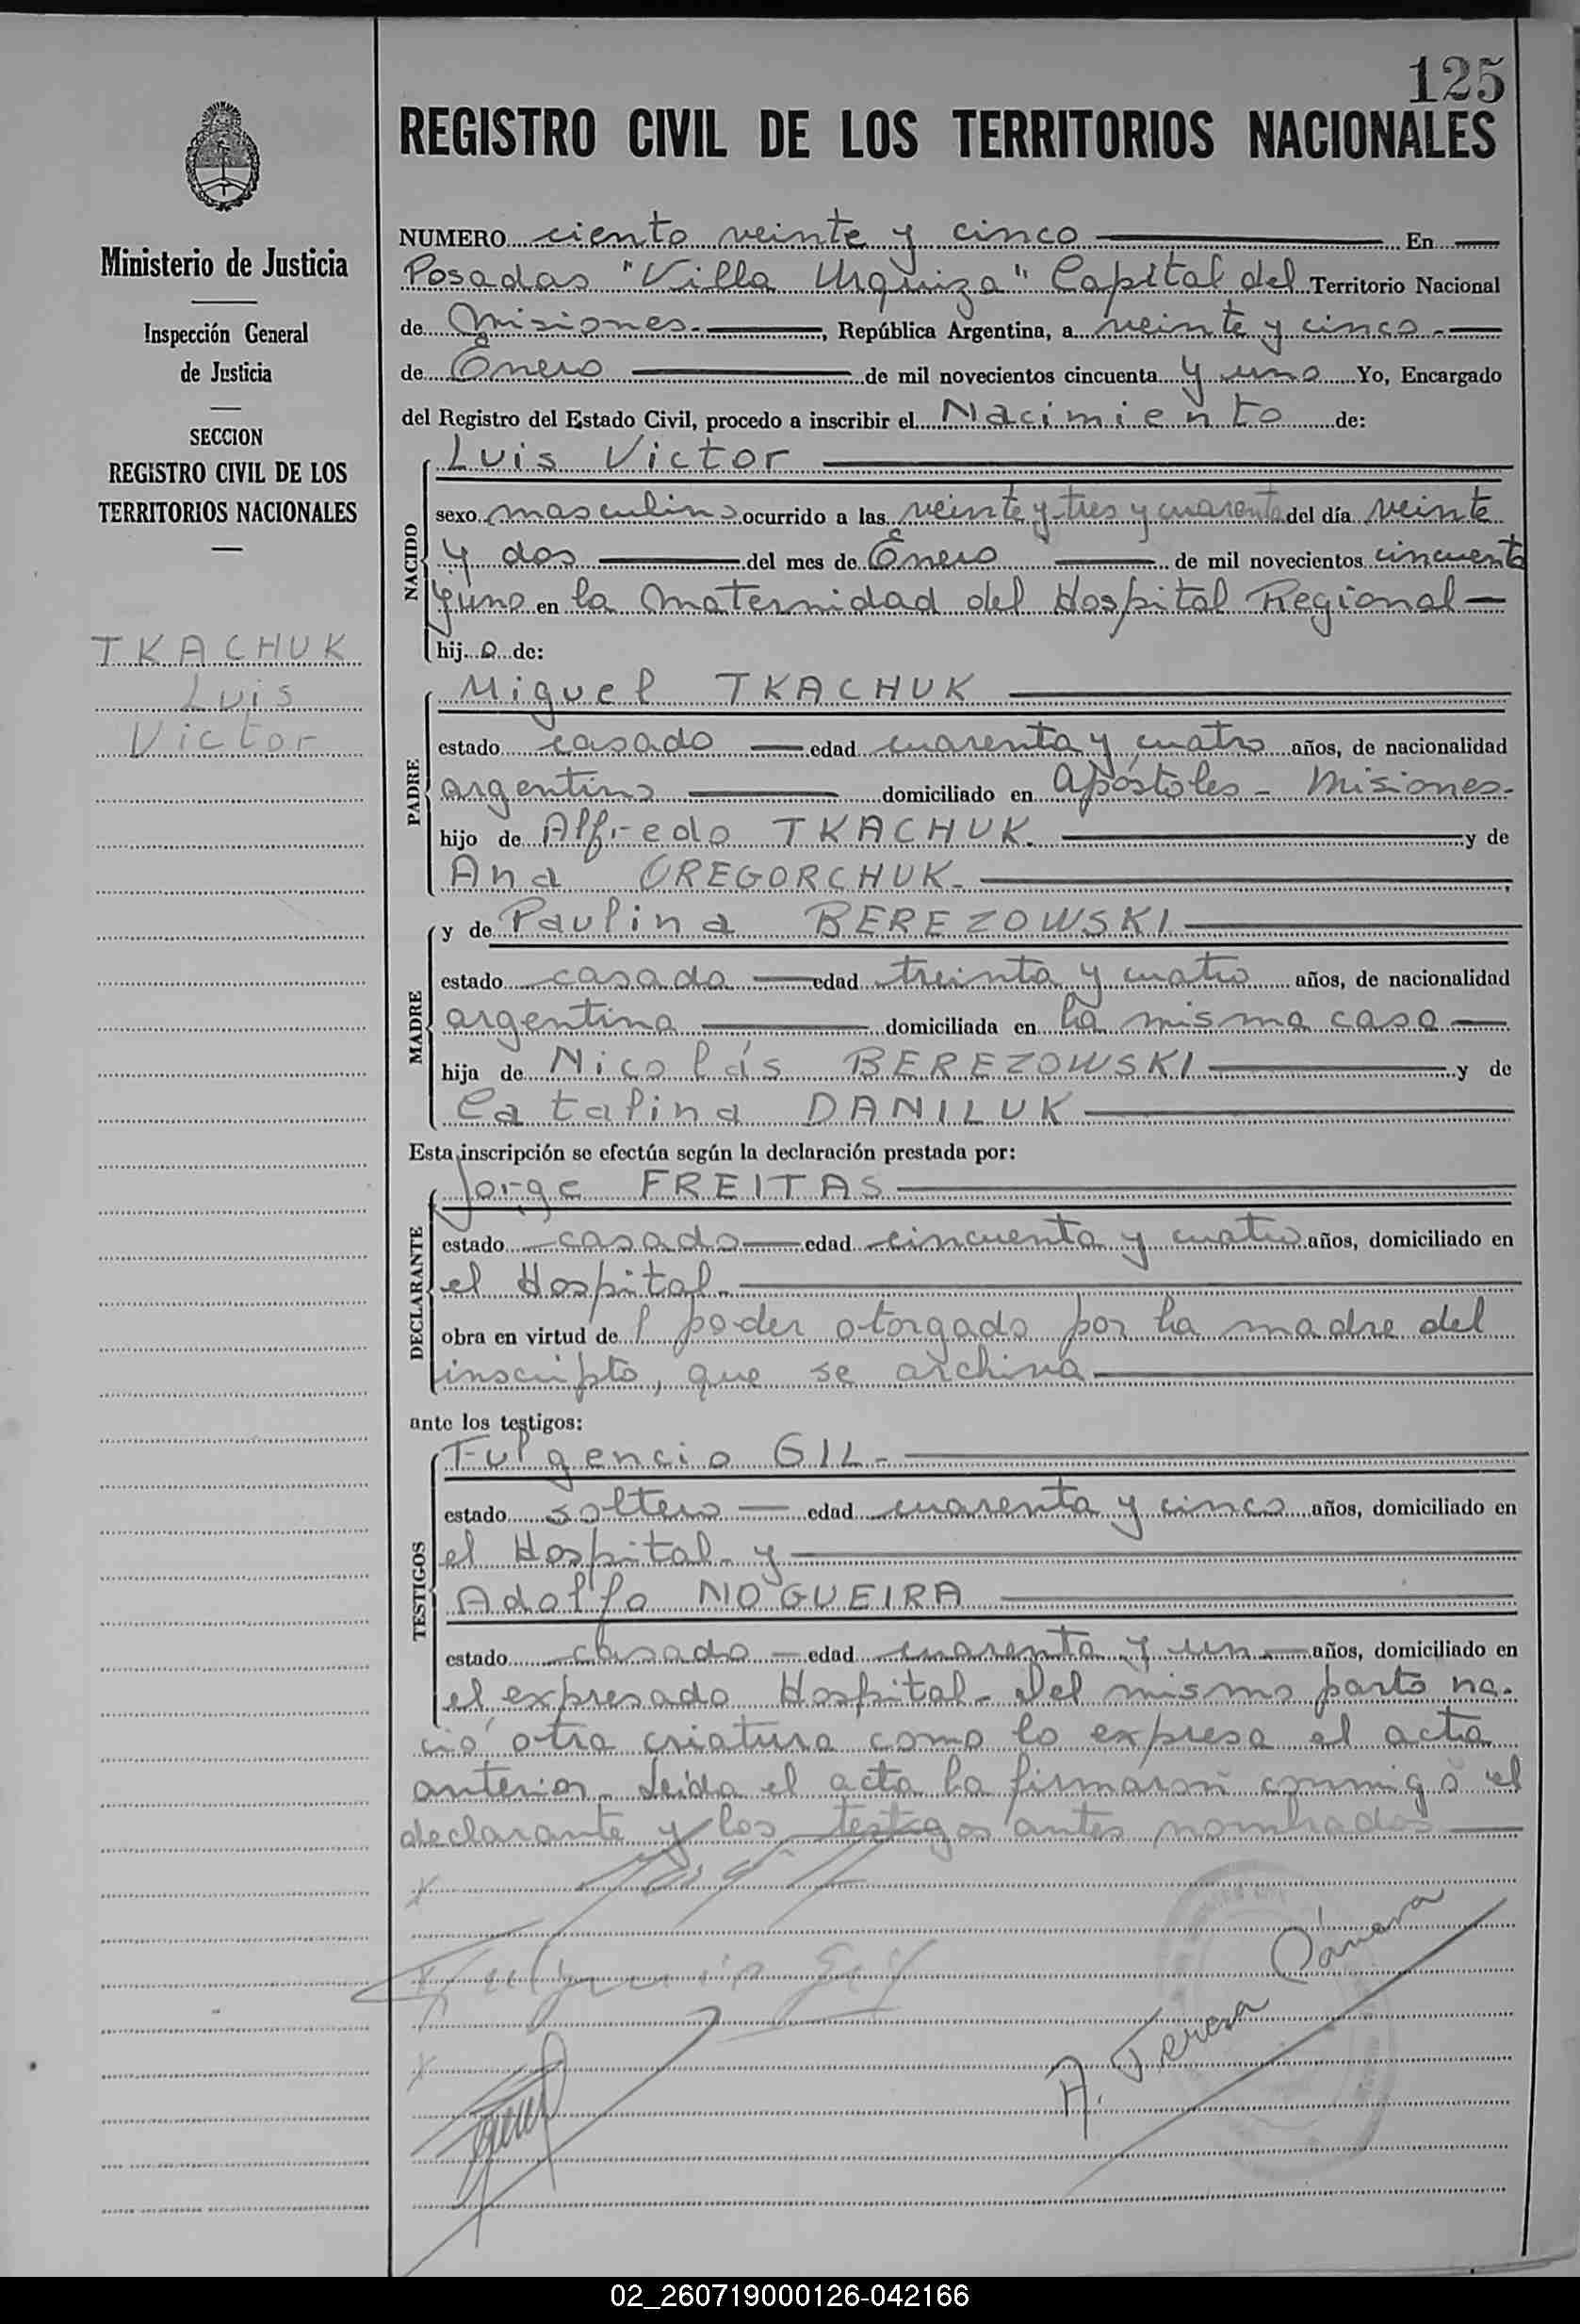 125
REGISTRO CIVIL DE LOS TERRITORIOS NACIONALES
Ministerio de Justicia
Inspección General
de Justicia
SECCION
REGISTRO CIVIL DE LOS
TERRITORIOS NACIONALES
TKACHUK
Luis
Victor
NUMERO ciento veinte y cinco En
Posadas "Villa Urquiza" Capital del Territorio Nacional
de Misiones.-, República Argentina, a veinte y cinco.-
de Enero de mil novecientos cincuenta y uno Yo, Encargado
del Registro del Estado Civil, procedo a inscribir el Nacimiento de:
NACIDO
Luis Victor
sexo masculino ocurrido a las veinte y tres y cuarenta del día veinte
y dos del mes de Enero de mil novecientos cincuenta
y uno en la Maternidad del Hospital Regional
hij o de:
PADRE
Miguel TKACHUK
estado casado edad cuarenta y cuatro años, de nacionalidad
argentino domiciliado en Apóstoles - Misiones.
hijo de Alfredo TKACHUK. y de
Ana OREGORCHUK.
MADRE
y de Paulina BEREZOWSKI
estado casada edad treinta y cuatro años, de nacionalidad
argentina domiciliada en la misma casa
hija de Nicolás BEREZOWSKI y de
Catalina DANILUK
Esta inscripción se efectúa según la declaración prestada por:
DECLARANTE
Jorge FREITAS
estado casado edad cincuenta y cuatro años, domiciliado en
el Hospital.
obra en virtud de l poder otorgado por la madre del
inscripto, que se archiva
ante los testigos:
TESTIGOS
Fulgencio GIL.
estado soltero edad cuarenta y cinco años, domiciliado en
el Hospital y
Adolfo NOGUEIRA
estado casado edad cuarenta y un años, domiciliado en
el expresado Hospital. Del mismo parto na-
ció otra criatura como lo expresa el acta
anterior. Leída el acta la firmaron conmigo el
declarante y los testigos antes nombrados
Fulgencio Gil
A. Teresa Cámara
02_260719000126-042166